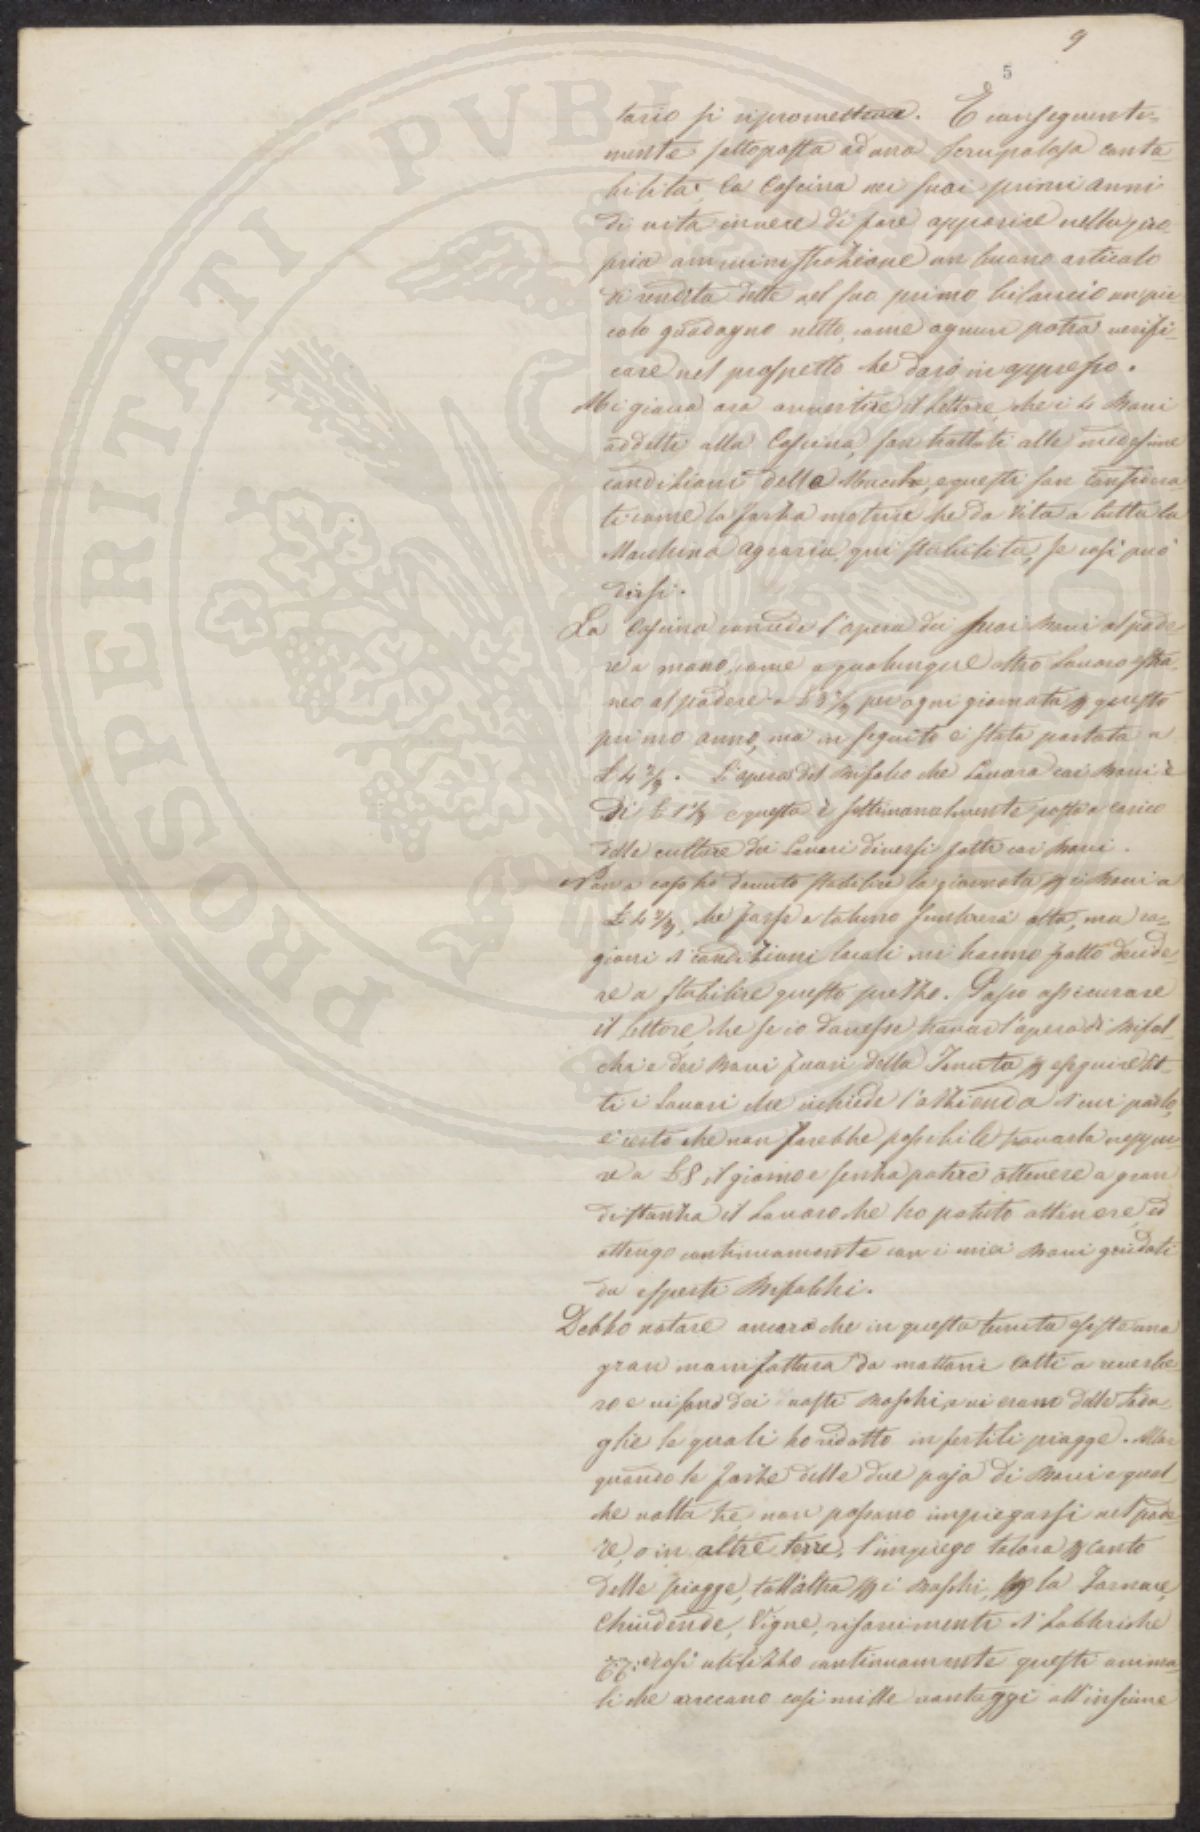 9
5
tario si riprometteva. E conseguente-
mente sottoposta ad una scrupolosa conta-
bilità, la Cascina nei suoi primi anni
di vita invece di fare apparire nella pro-
pria amministrazione un buono articolo
di rendita dette nel suo primo bilancio un pic-
colo guadagno netto, come ognuno potrà verifi-
care nel prospetto che darò in appresso.
Mi giova ora avvertire il Lettore, che i 4 Bovi
addetti alla Cascina, son trattati alle medesime
condizioni delle Mucche, e questi son considera-
ti come la forza motrice che da vita a tutta la
Macchina agraria qui stabilita, se così può
dirsi.
La Cascina concede l'opera dei suoi Bovi al pode-
re a mano, come a qualunque altro Lavoro estra-
neo al podere a £ 3 2/3 per ogni giornata p questo
primo anno, ma in seguito è stata portata a
£ 4 2/3. L'opera del Bifolco che Lavora coi Bovi è
di £ 1 1/3 e questa è settimanalmente posta a carico
delle culture dei Lavori diversi fatti coi Bovi.
Non a caso ho dovuto stabilire la giornata p i Bovi a
£ 4 2/3, che forse a taluno sembrerà alta, ma ra-
gioni di condizioni locali mi hanno fatto decide-
re a stabilire questo prezzo. Posso assicurare
il Lettore, che se io dovesse trovar l'opera di Bifol-
chi e dei Bovi fuori della Tenuta p eseguire tut-
ti i Lavori che richiede l'azienda di cui parlo,
è certo che non sarebbe possibile trovarla neppu-
re a £ 8 il giorno e senza potere ottenere a gran
distanza il Lavoro che ho potuto ottenere, ed
ottengo continuamente con i miei Bovi guidati
da esperti Bifolchi.
Debbo notare ancora che in questa tenuta esiste una
gran manifattura da mattoni cotti a
e vi sono dei vasti Boschi, e vi erano delle
le quali ho ridotto in fertili piagge. Allor
quando le forze delle due paja di Bovi e qual-
che volta tre, non possono impiegarsi nel pode-
re, o in altre terre, l'impiego talora p conto
delle piagge, tall'altra p i Boschi, p la Fornace,
Chiudende, Vigne, risarcimenti di Fabbriche
così utilizzo continuamente questi anima-
li che arrecano così mille vantaggi all'insieme